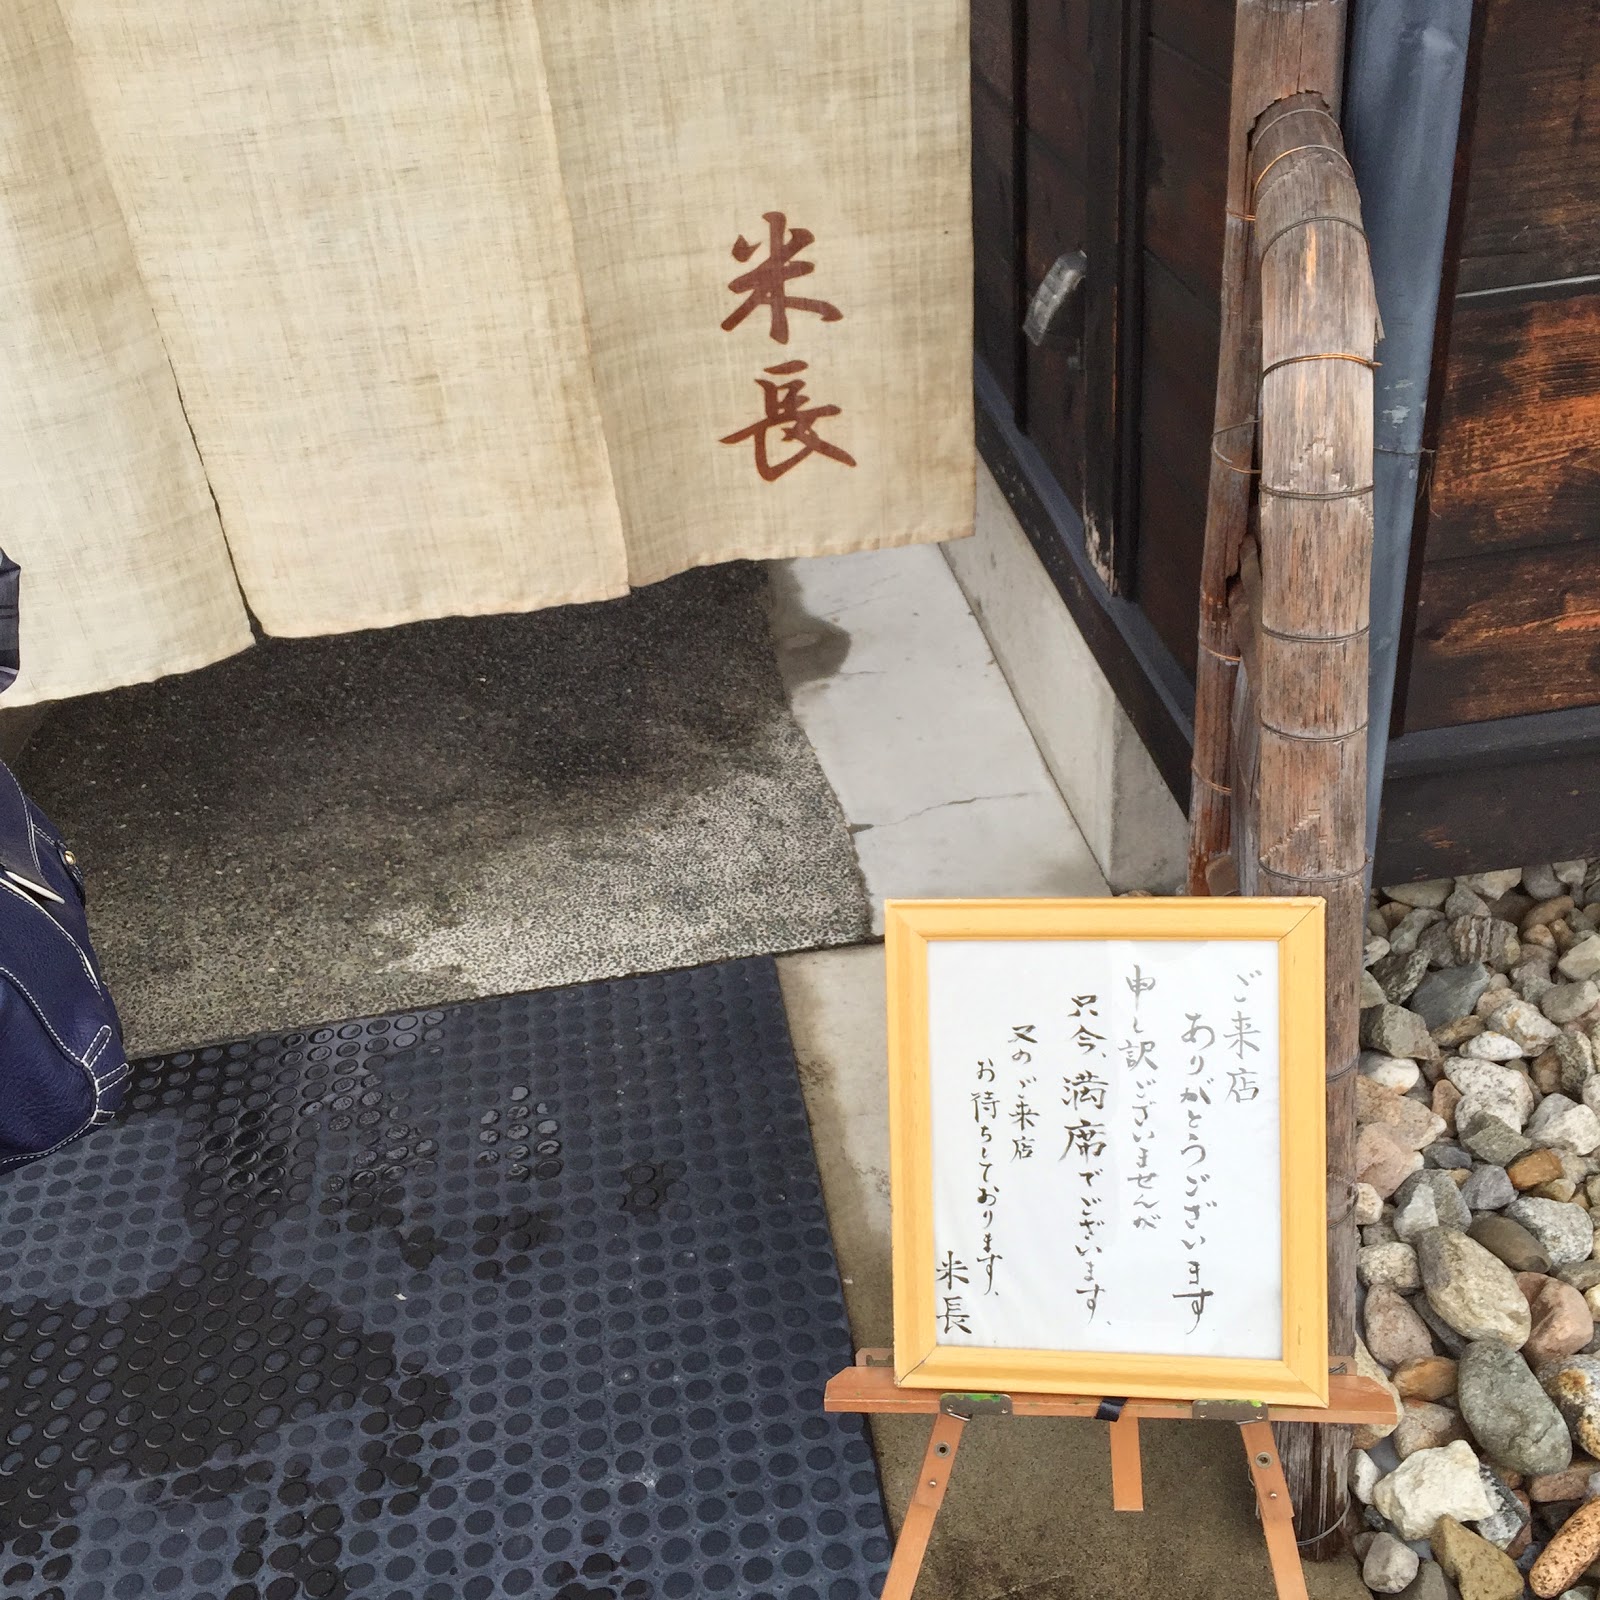 米長
ご来店
ありがとうございます
申し訳ございませんが
只今、満席でございます、
又のご来店
お待ちしております、
米長